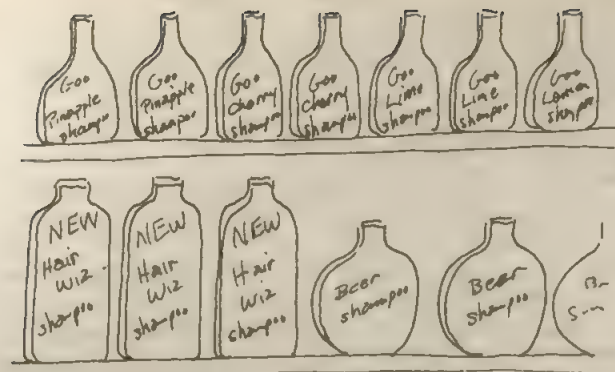 Goo
Pinapple
shampoo
Goo
Pinapple
shampoo
Goo
cherry
shampoo
Goo
cherry
shampoo
Goo
Lime
shampoo
Goo
Lime
shampoo
Goo
Lemon
shampoo
NEW
Hair
Wiz
shampoo
NEW
Hair
Wiz
shampoo
NEW
Hair
Wiz
shampoo
Beer
shampoo
Beer
shampoo